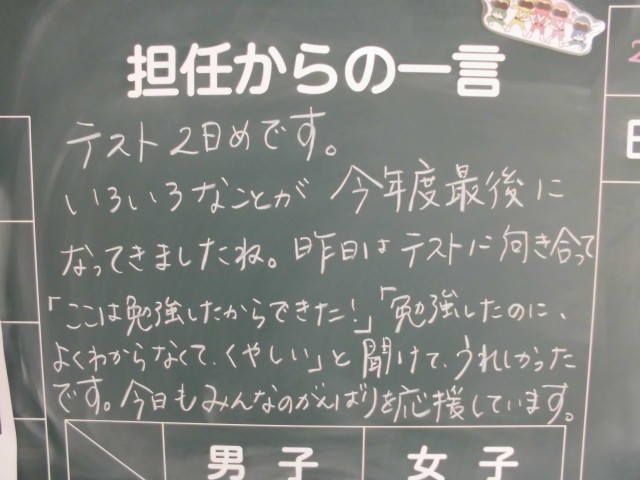 担任からの一言
テスト2日めです。
いろいろなことが今年度最後に
なってきましたね。昨日はテストに向き合って
「ここは勉強したからできた!」「勉強したのに、
よくわからなくて、くやしい」と聞けて、うれしかった
です。今日もみんなのがんばりを応援しています。
男子
女子
2